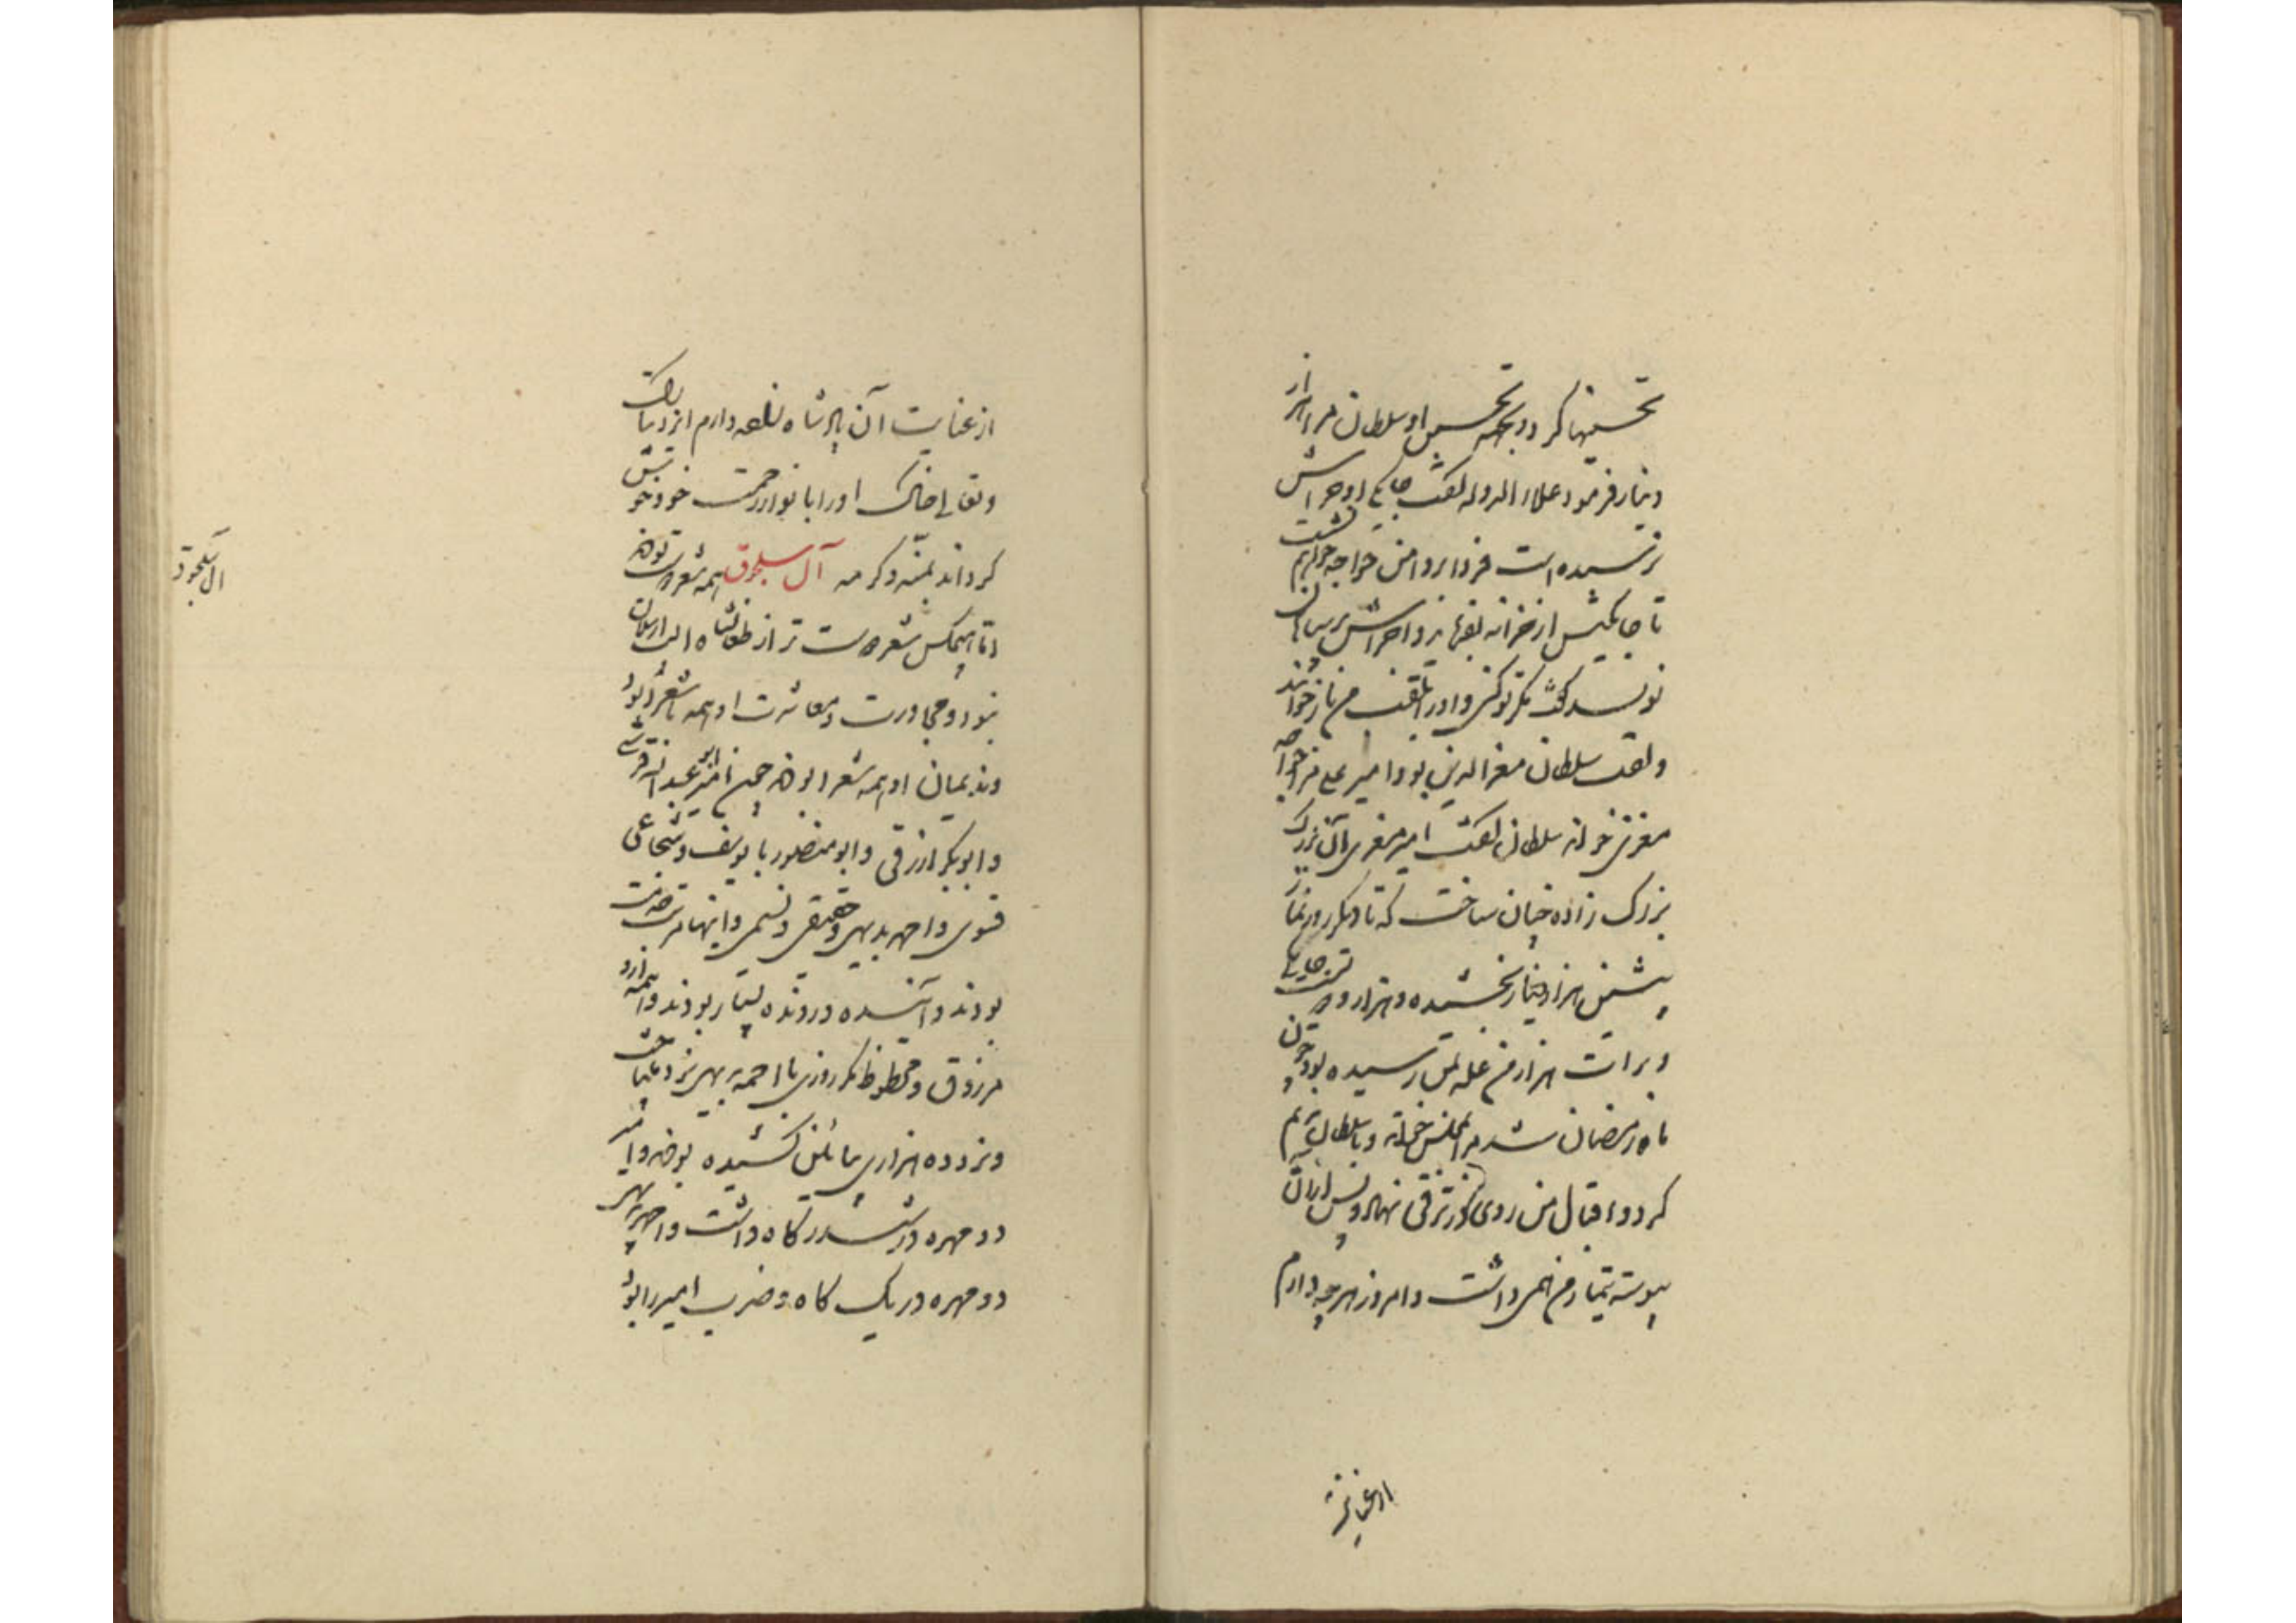 تحسینها کرد و بجهة تحسین او سلطان مرا هزار
دینار فرمود علاء الدوله گفت جامگی و اجراش
نرسیده است فردا بر دامن خواجه خواهم نشست
تا جامگیش از خزانه بفرماید و اجراش بر سپاهان
نویسد گفت مگر تو کنی و او را بلقب من باز خوانید
و لقب سلطان معز الدین بود امیر علی مرا خواجه
معزی خواند سلطان گفت امیر معزی آن بزرگ
بزرگ زاده چنان ساخت که تا دیگر روز نماز
پیشین هزار دینار بخشیده و هزار و دویست جامگی
و برات هزار من غله بمن رسیده بود و چون
ماه رمضان شد مرا بمجلس خواند و با سلطان ندیم
کرد و اقبال من روی در ترقی نهاد و پس از آن
پیوسته تیمار من همی داشت و امروز هرچه دارم
از عنایت
از عنایت آن پادشاه زاده دارم ایزد تبارک
و تعالی خاک او را بانوار رحمت خود خوش
گرداند بمنه و کرمه آل سلجوق همه شعر دوست بودند
اما هیچکس شعر دوست تر از طغانشاه الب ارسلان
نبود و محاورت و معاشرت او همه با شعرا بود
و ندیمان او همه شعرا بودند چون امیر ابو عبد الله قرشی
و ابو بکر ازرقی و ابو منصور با یوسف و شجاعی
فسوی و احمد بدیهی و حقیقی و نسیمی و اینها مرتب خدمت
بودند و آینده و رونده بسیار بودند و همه ازو
مرزوق و محظوظ مگر روزی با احمد بدیهی نرد میباخت
و نرد ده هزاری بپائین کشیده بود و امیر
دو مهره در شش گاه داشت و احمد بدیهی
دو مهره در یک گاه و ضرب امیر را بود
آل سلجوق